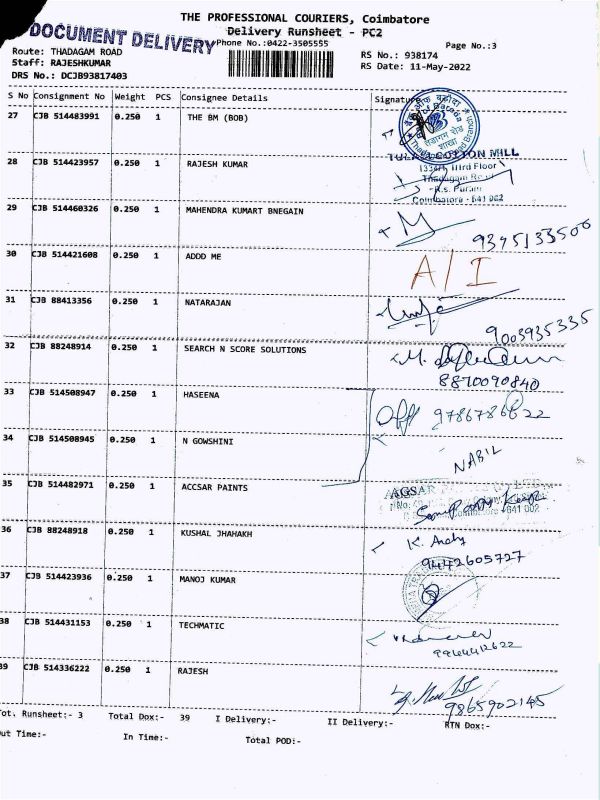 THE PROFESSIONAL COURIERS, Coimbatore
DOCUMENT DELIVERY
Delivery Runsheet - PC2
Phone No.:0422-3505555
Page No.:3
Route: THADAGAM ROAD
RS No.: 938174
Staff: RAJESHKUMAR
RS Date: 11-May-2022
DRS No.: DCJB93817403
S No Consignment No Weight PCS Consignee Details Signature
27 CJB 514483991 0.250 1 THE BM (BOB)
28 CJB 514423957 0.250 1 RAJESH KUMAR
COTTON MILL
IIIrd Floor
Coimbatore - 641 002
29 CJB 514460326 0.250 1 MAHENDRA KUMART BNEGAIN
9345133500
30 CJB 514421608 0.250 1 ADDD ME
A/I
31 CJB 88413356 0.250 1 NATARAJAN
9003935335
32 CJB 88248914 0.250 1 SEARCH N SCORE SOLUTIONS
8870090840
33 CJB 514508947 0.250 1 HASEENA
34 CJB 514508945 0.250 1 N GOWSHINI
NABIL
35 CJB 514482971 0.250 1 ACCSAR PAINTS
36 CJB 88248918 0.250 1 KUSHAL JHAHAKH
9442605727
37 CJB 514423936 0.250 1 MANOJ KUMAR
38 CJB 514431153 0.250 1 TECHMATIC
9944412622
39 CJB 514336222 0.250 1 RAJESH
9865902145
Tot. Runsheet:- 3 Total Dox:- 39 I Delivery:- II Delivery:- RTN Dox:-
Out Time:- In Time:- Total POD:-